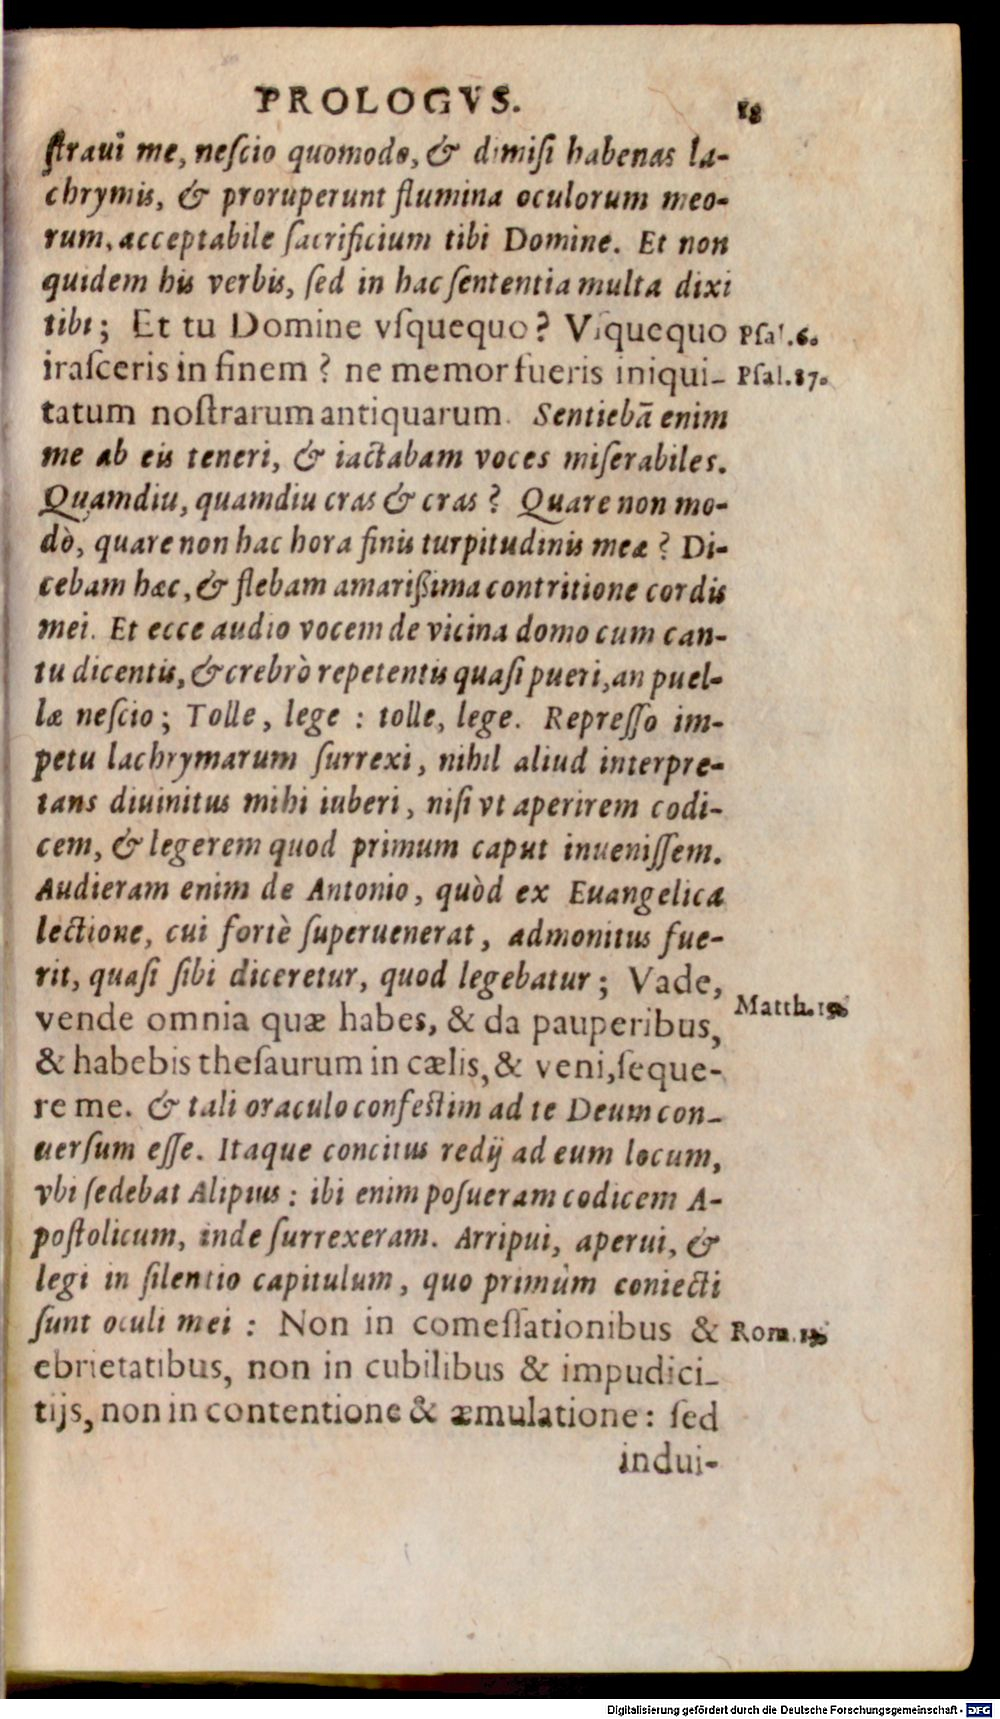 PROLOGVS. 18
ſtraui me, neſcio quomodo, & dimiſi habenas la-
chrymis, & proruperunt flumina oculorum meo-
rum, acceptabile ſacrificium tibi Domine. Et non
quidem his verbis, ſed in hac ſententia multa dixi
tibi; Et tu Domine vſquequo? Vſquequo Pſal.6.
iraſceris in finem? ne memor fueris iniqui- Pſal.87.
tatum noſtrarum antiquarum. Sentiebã enim
me ab eis teneri, & iactabam voces miſerabiles.
Quamdiu, quamdiu cras & cras? Quare non mo-
dò, quare non hac hora finis turpitudinis meæ? Di-
cebam hæc, & flebam amariſsima contritione cordis
mei. Et ecce audio vocem de vicina domo cum can-
tu dicentis, & crebrò repetentis quaſi pueri, an puel-
læ neſcio; Tolle, lege: tolle, lege. Repreſſo im-
petu lachrymarum ſurrexi, nihil aliud interpre-
tans diuinitus mihi iuberi, niſi vt aperirem codi-
cem, & legerem quod primum caput inueniſſem.
Audieram enim de Antonio, quòd ex Euangelica
lectione, cui fortè ſuperuenerat, admonitus fue-
rit, quaſi ſibi diceretur, quod legebatur; Vade,
vende omnia quæ habes, & da pauperibus, Matth.19.
& habebis theſaurum in cælis, & veni, ſeque-
re me. & tali oraculo confeſtim ad te Deum con-
uerſum eſſe. Itaque concitus redij ad eum locum,
vbi ſedebat Alipius: ibi enim poſueram codicem A-
poſtolicum, inde ſurrexeram. Arripui, aperui, &
legi in ſilentio capitulum, quo primùm coniecti
ſunt oculi mei: Non in comeſſationibus & Rom.13.
ebrietatibus, non in cubilibus & impudici-
tijs, non in contentione & æmulatione: ſed
indui-
Digitalisierung gefördert durch die Deutsche Forschungsgemeinschaft - DFG